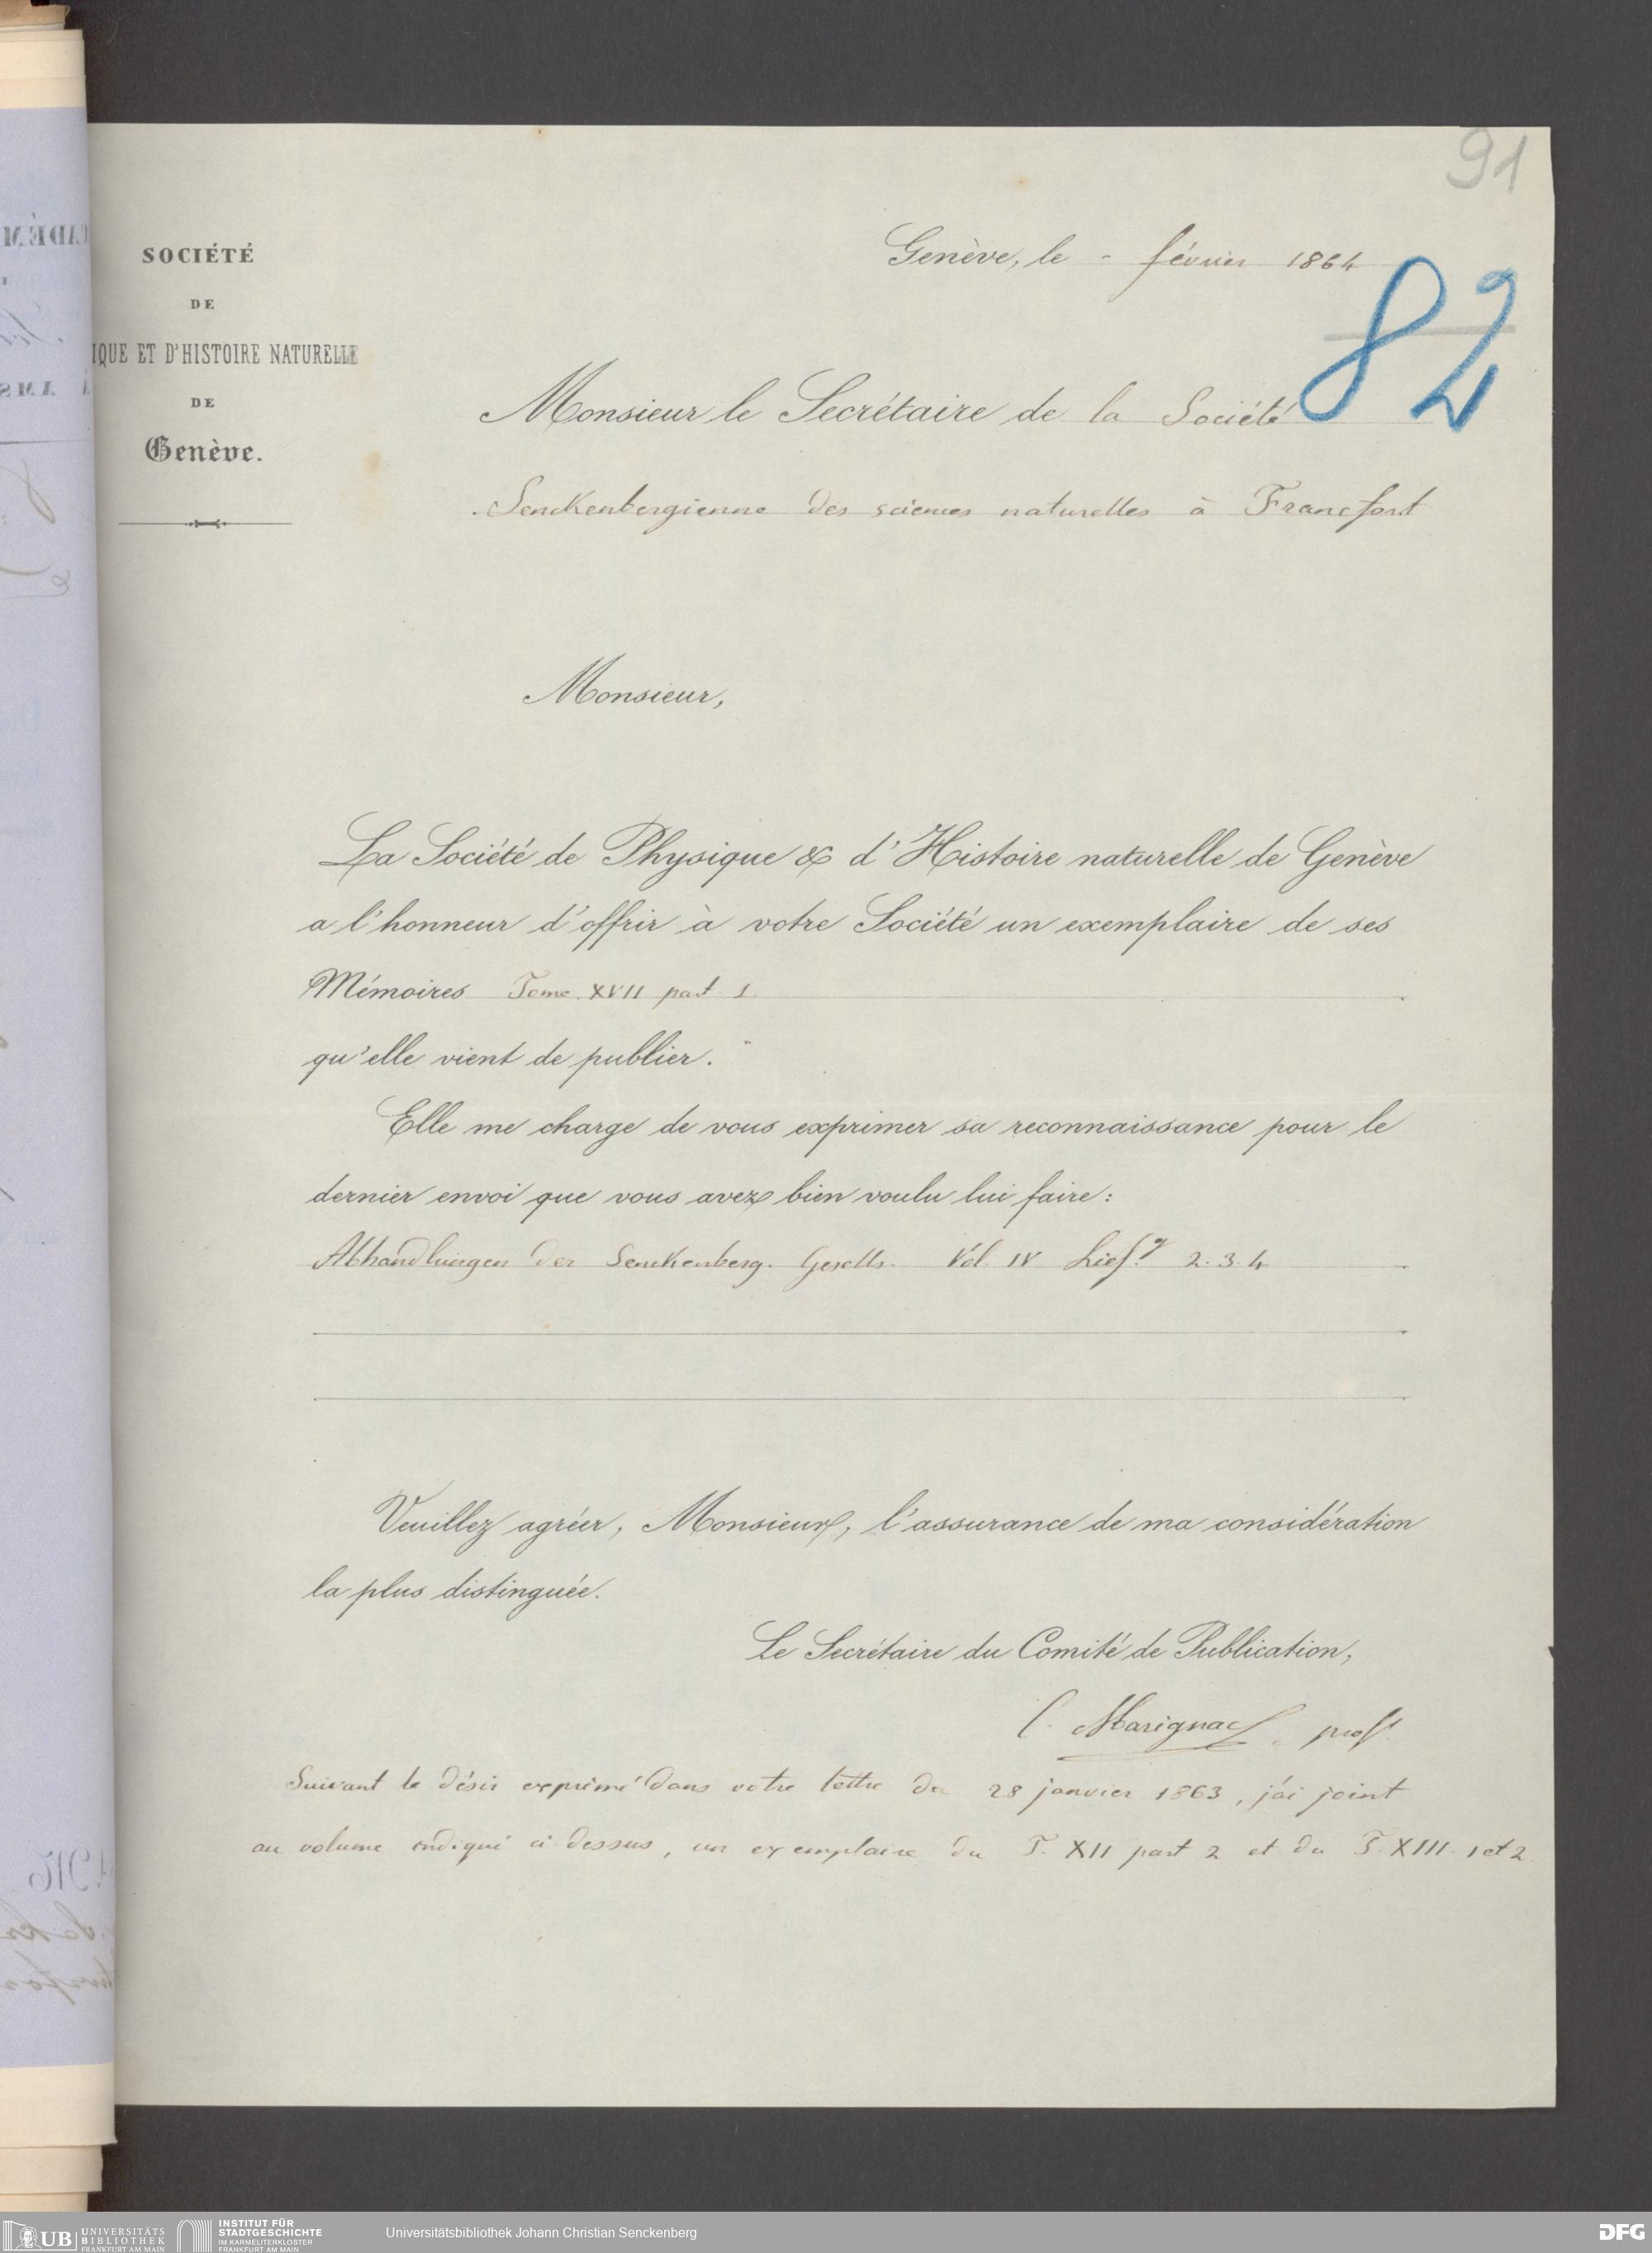 91
82
SOCIÉTÉ
DE
IQUE ET D'HISTOIRE NATURELLE
DE
Genève.
Genève, le - février 1864
Monsieur le Secrétaire de la Société
Senckenbergienne des sciences naturelles à Francfort
Monsieur,
La Société de Physique & d'Histoire naturelle de Genève
a l'honneur d'offrir à votre Société un exemplaire de ses
Mémoires Tome XVII part 1
qu'elle vient de publier.
Elle me charge de vous exprimer sa reconnaissance pour le
dernier envoi que vous avez bien voulu lui faire :
Abhandlungen der Senckenberg. Gesells. Vol. IV Lief.g 2. 3. 4
Veuillez agréer, Monsieur, l'assurance de ma considération
la plus distinguée.
Le Secrétaire du Comité de Publication,
C. Marignac, profr
Suivant le désir exprimé dans votre lettre du 28 janvier 1863, j'ai joint
au volume indiqué ci dessus, un exemplaire du T. XII part 2 et du T. XIII. 1 et 2
UB UNIVERSITÄTS
BIBLIOTHEK
FRANKFURT AM MAIN
INSTITUT FÜR
STADTGESCHICHTE
IM KARMELITERKLOSTER
FRANKFURT AM MAIN
Universitätsbibliothek Johann Christian Senckenberg
DFG